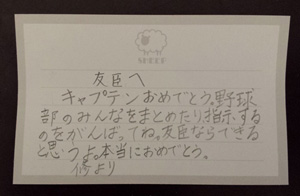 友臣へ
キャプテンおめでとう。野球
部のみんなをまとめたり指示する
のをがんばってね。友臣ならできる
と思うよ。本当におめでとう。
修より